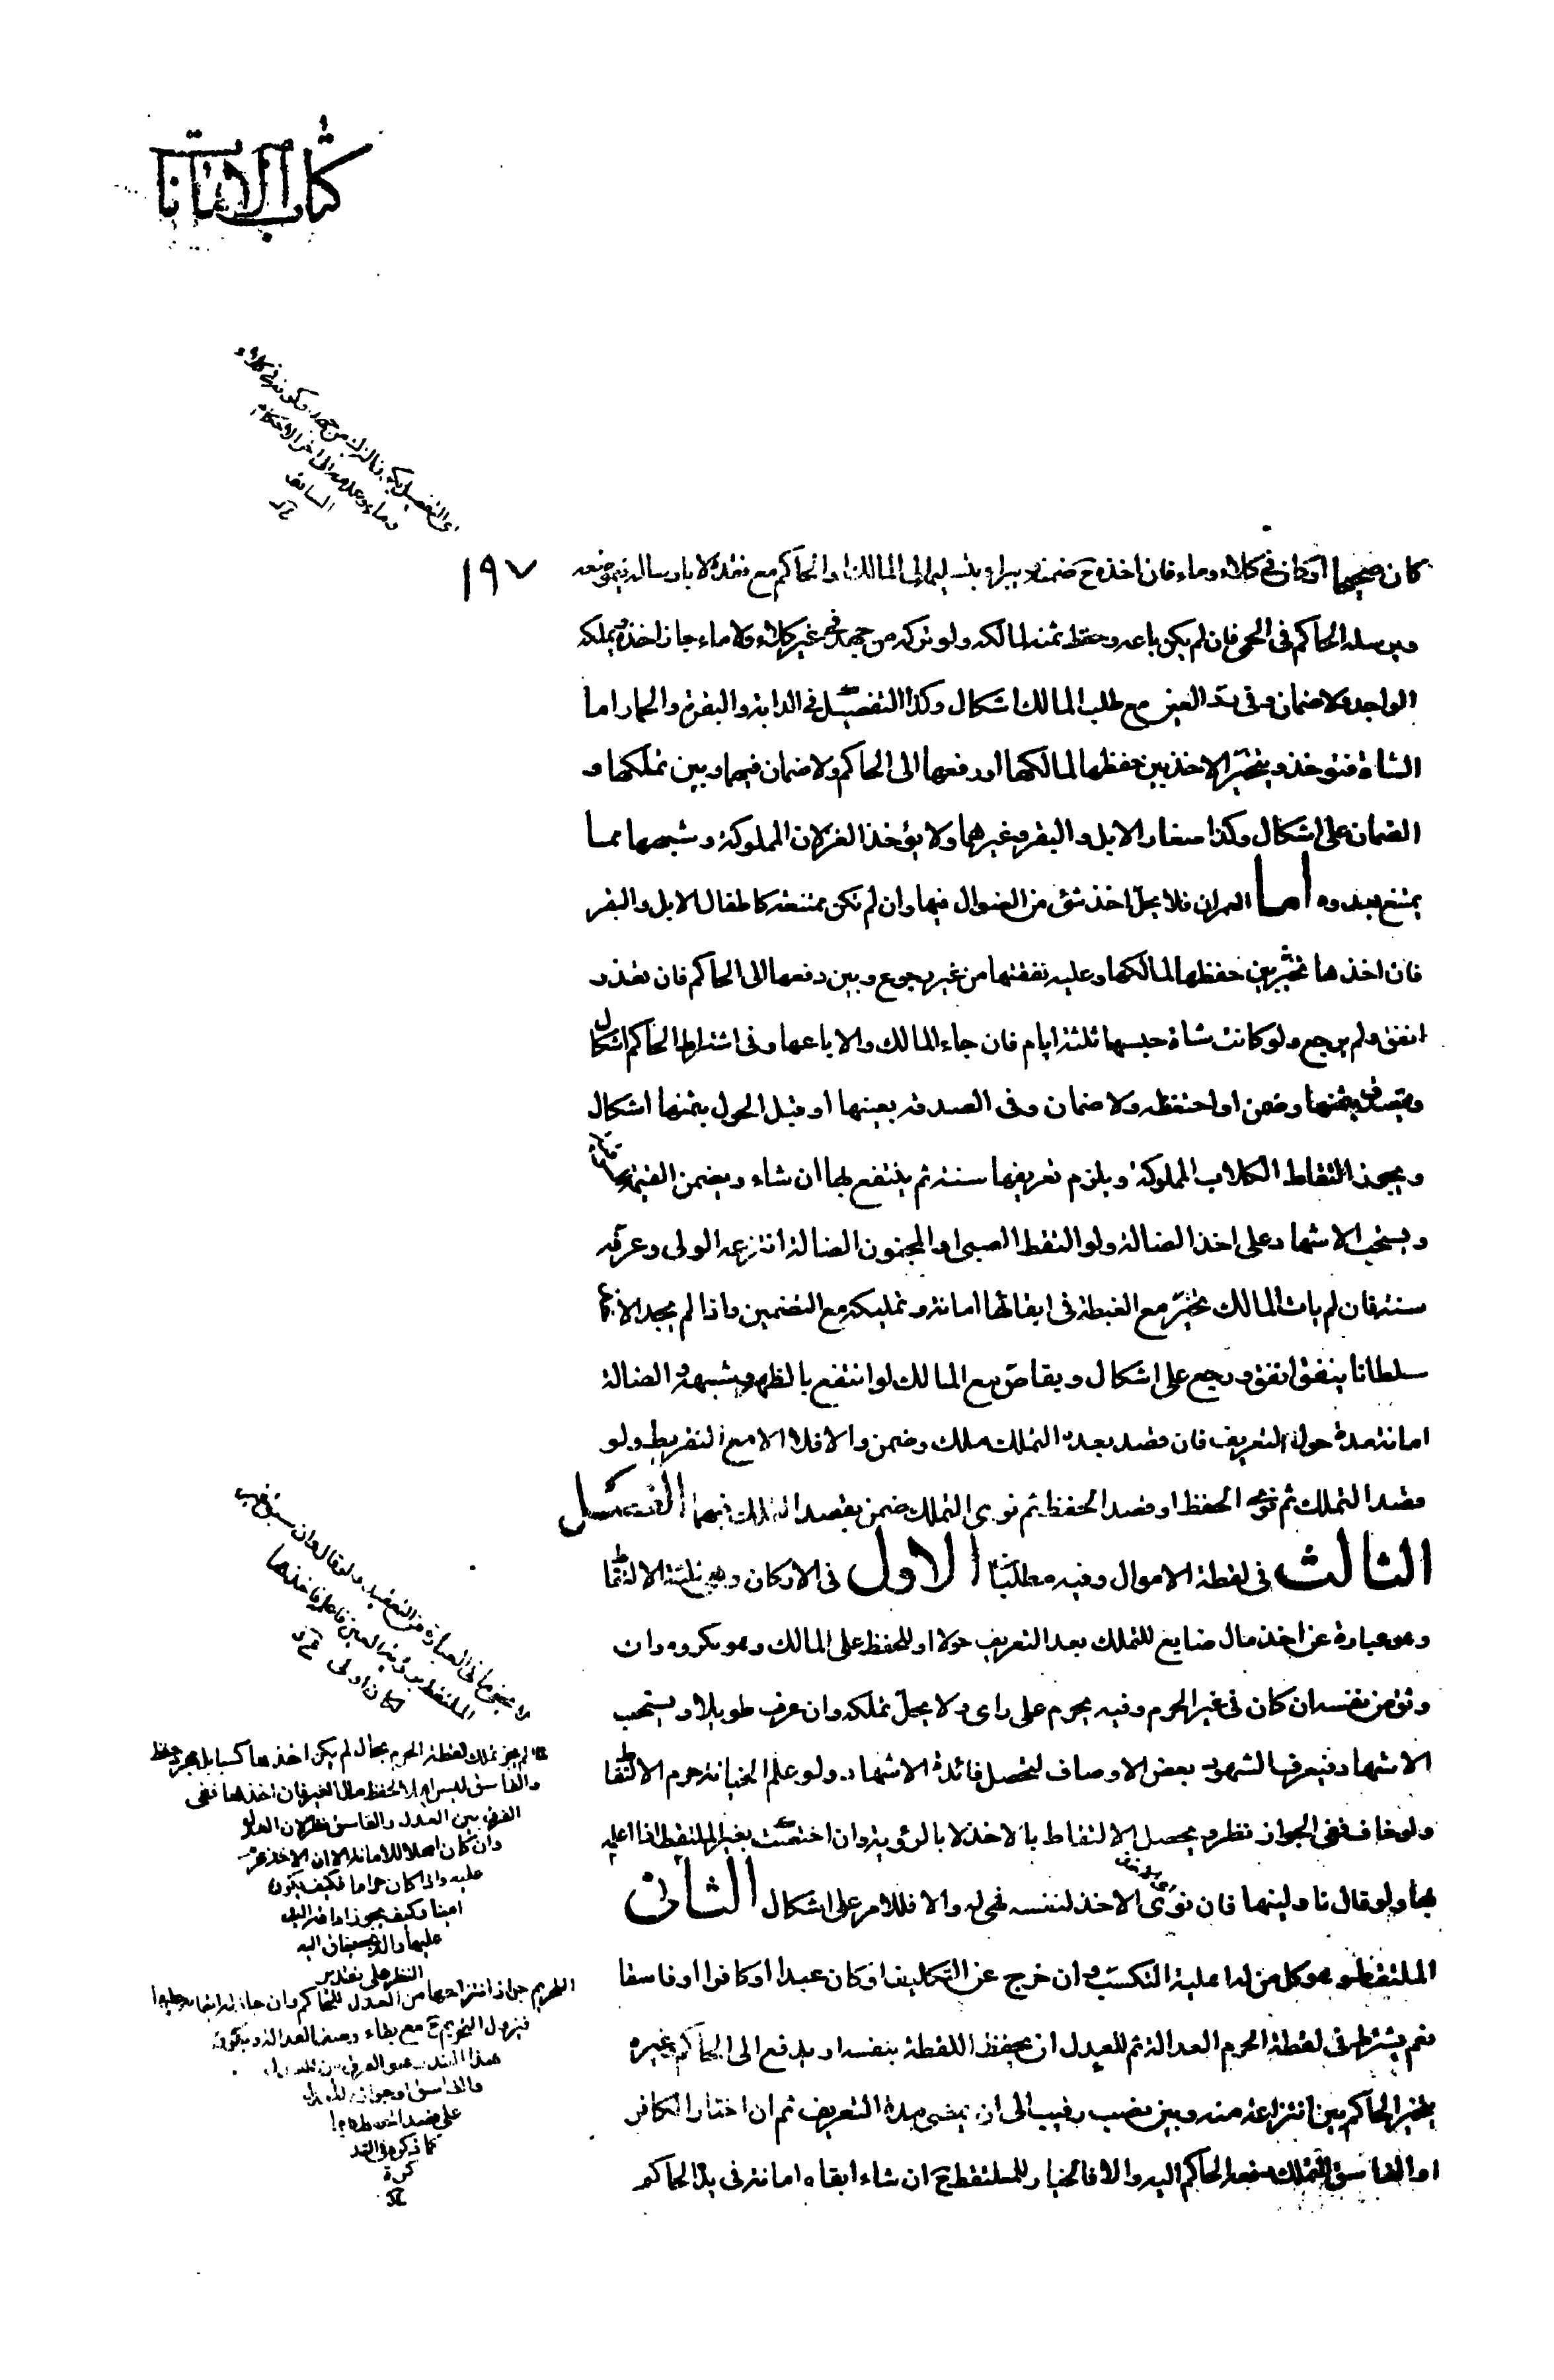 كتاب الامانات
اى التفصيل بالترك من جهد وكونه فى كلاء و
وماء وعدمه الى اخر الاحكام
السابقه
١٩٧
كان صحيحا او كان فى كلاء وماء فان اخذه ح ضمنه ويبراء بتسليمه الى المالك او الحاكم مع فقده لا بارساله فى موضعه
ويرسله الحاكم فى الحمى فان لم يكن باعه وحفظ ثمنه لمالكه ولو تركه من جهد فى غير كلاء ولا ماء جاز اخذه ويملكه
الواجد ولا ضمان وفى ردّ العين مع طلب المالك اشكال وكذا التفصيل فى الدابة والبقرة والحمار اما
الشاة فتؤخذ ويتخيّر الاخذ بين حفظها لمالكها او دفعها الى الحاكم ولا ضمان فيهما وبين تملكها و
الضمان على اشكال وكذا صغار الابل والبقر وغيرهما ولا يؤخذ الغزلان المملوكة وشبهها مما
يمتنع بعدوه اما العمران فلا يحلّ اخذ شئ من الضوال فيها وان لم تكن ممتنعة كاطفال الابل والبقر
فان اخذها تخيّر بين حفظها لمالكها وعليه نفقتها من غير رجوع وبين دفعها الى الحاكم فان تعذر
انفق ولم يرجع ولو كانت شاة حبسها ثلثة ايام فان جاء المالك والا باعها وفى اشتراط الحاكم اشكال
ويتصدق بثمنها وضمن او احتفظه ولا ضمان وفى الصدقة بعينها او قبل الحول بثمنها اشكال
ويجوز التقاط الكلاب المملوكة ويلزم تعريفها سنة ثم ينتفع بها ان شاء ويضمن القيمة
ويستحب الاشهاد على اخذ الضالة ولو التقط الصبى او المجنون الضالة انتزعه الولى وعرفه
سنة فان لم يات المالك تخيّر مع الغبطة فى ابقائها امانة وتمليكه مع التضمين واذا لم يجد الاخذ
سلطانا ينفق انفق ورجع على اشكال ويقاصّ مع المالك لو انتفع بالظهر وشبهه والضالة
امانة مدة حول التعريف فان قصد بعده التملك ملك وضمن والا فلا الا مع التفريط ولو
قصد التملك ثم نوى الحفظ او قصد الحفظ ثم نوى التملك ضمن بقصد التملك فيهما الفصل
الثالث فى لقطة الاموال وفيه مطلبان الاول فى الاركان وهى ثلثة الالتقاط
وهو عبارة عن اخذ مال ضايع للتملك بعد التعريف حولا او للحفظ على المالك وهو مكروه وان
وثق من نفسه ان كان فى غير الحرم وفيه يحرم على راى ولا يحلّ تملكه وان عرف طويلا ويستحب
الاشهاد فيعرف الشهود بعض الاوصاف لتحصل فائدة الاشهاد ولو علم الخيانة حرم الالتقاط
ولو خاف ففى الجواز نظر ويحصل الالتقاط بالاخذ لا بالرؤية وان اختصت بغير الملتقط اذا اعلم
بها ولو قال ناولينها فان نوى الاخذ لنفسه فهى له والا فللامر على اشكال الثانى
الملتقط وهو كل من له اهلية التكسب وان خرج عن التكليف او كان عبدا او كافرا او فاسقا
نعم يشترط فى لقطة الحرم العدالة ثم للعدل ان يحفظ اللقطة بنفسه او يدفع الى الحاكم وغيره
يتخير الحاكم بين انتزاعه منه وبين نصب رقيب الى ان يمضى مدة التعريف ثم ان اختار الكافر
او الفاسق التملك دفعه الحاكم اليه والا فالخيار للملتقط ح ان شاء ابقاه امانة فى يد الحاكم
لما لم يجز تملك لقطة الحرم بحال لم يكن اخذها كسبا بل مجرد حفظ
والفاسق ليس اهلا لحفظ مال الغير فان اخذها ففى
الفرق بين العدل والفاسق نظر لان العدل
وان كان اهلا للامانة الا ان الاخذ محرم
عليه واذا كان حراما فكيف يكون
امينا وكيف يجوز اقراره اليد
عليها
النظر على تقدير
التحريم جواز انتزاعها من العدل للحاكم وان جاز له ابقاء
هذا القدر هو الفرق بين العدل